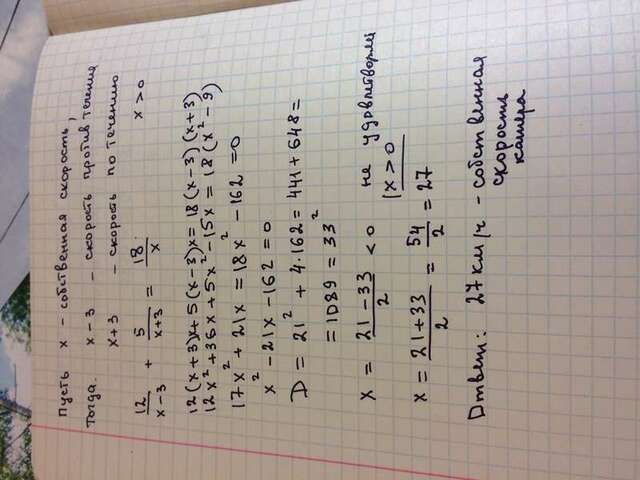 Пусть x - собственная скорость,
тогда x-3 - скорость против течения
x+3 - скорость по течению
12/(x-3) + 5/(x+3) = 18/x x>0
12(x+3)x+5(x-3)x=18(x-3)(x+3)
12x²+36x+5x²-15x=18(x²-9)
17x²+21x=18x²-162=0
x²-21x-162=0
D=21²+4·162=441+648=
=1089=33²
x=(21-33)/2 <0 не удовлетворяет
|x>0
x=(21+33)/2=54/2=27
Ответ: 27км/ч - собственная
скорость
катера